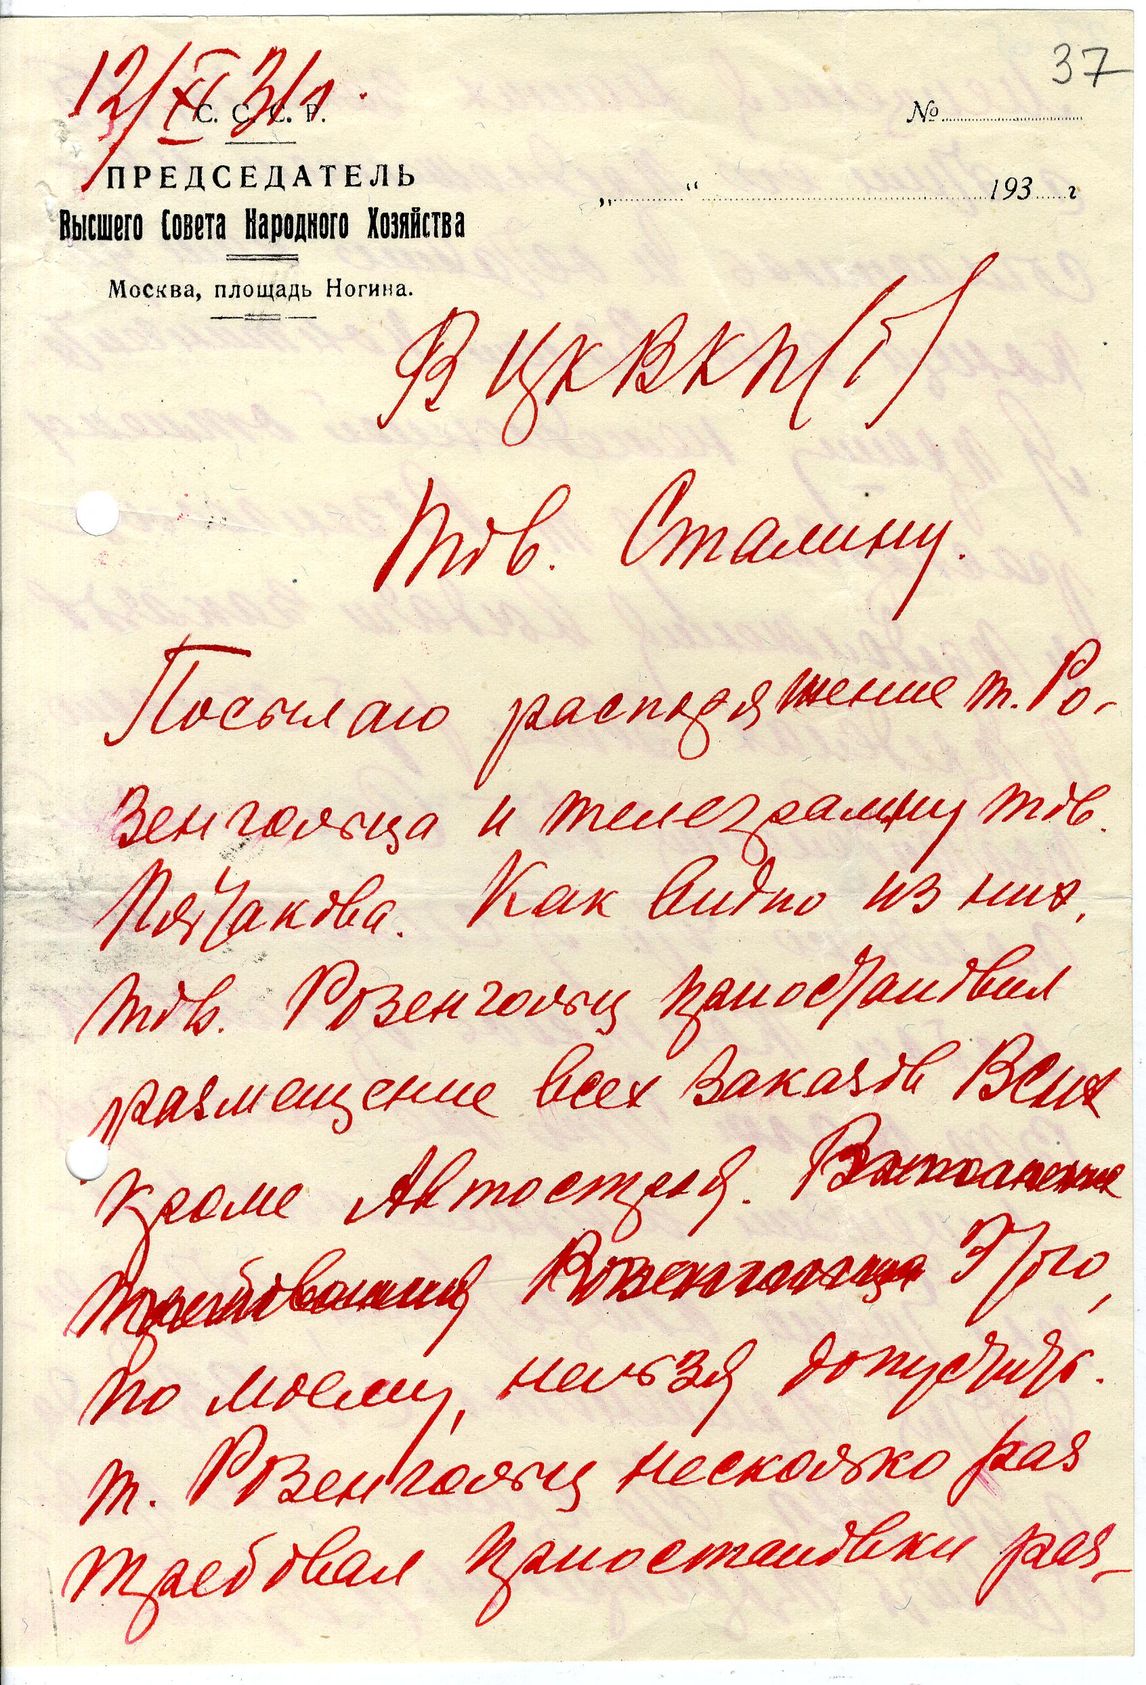 37
12/XI 31г.
С. С. С. Р.
№
ПРЕДСЕДАТЕЛЬ
Высшего Совета Народного Хозяйства
„ “ 193 г
Москва, площадь Ногина.
В ЦК ВКП(б)
Тов. Сталину.
Посылаю распоряжение т. Ро-
зенгольца и телеграмму тов.
Пятакова. Как видно из них,
тов. Розенгольц приостановил
размещение всех заказов ВСНХ
кроме Автостроя. Выполнение
требований Розенгольца Этого,
по моему, нельзя допустить.
т. Розенгольц несколько раз
требовал приостановки раз-